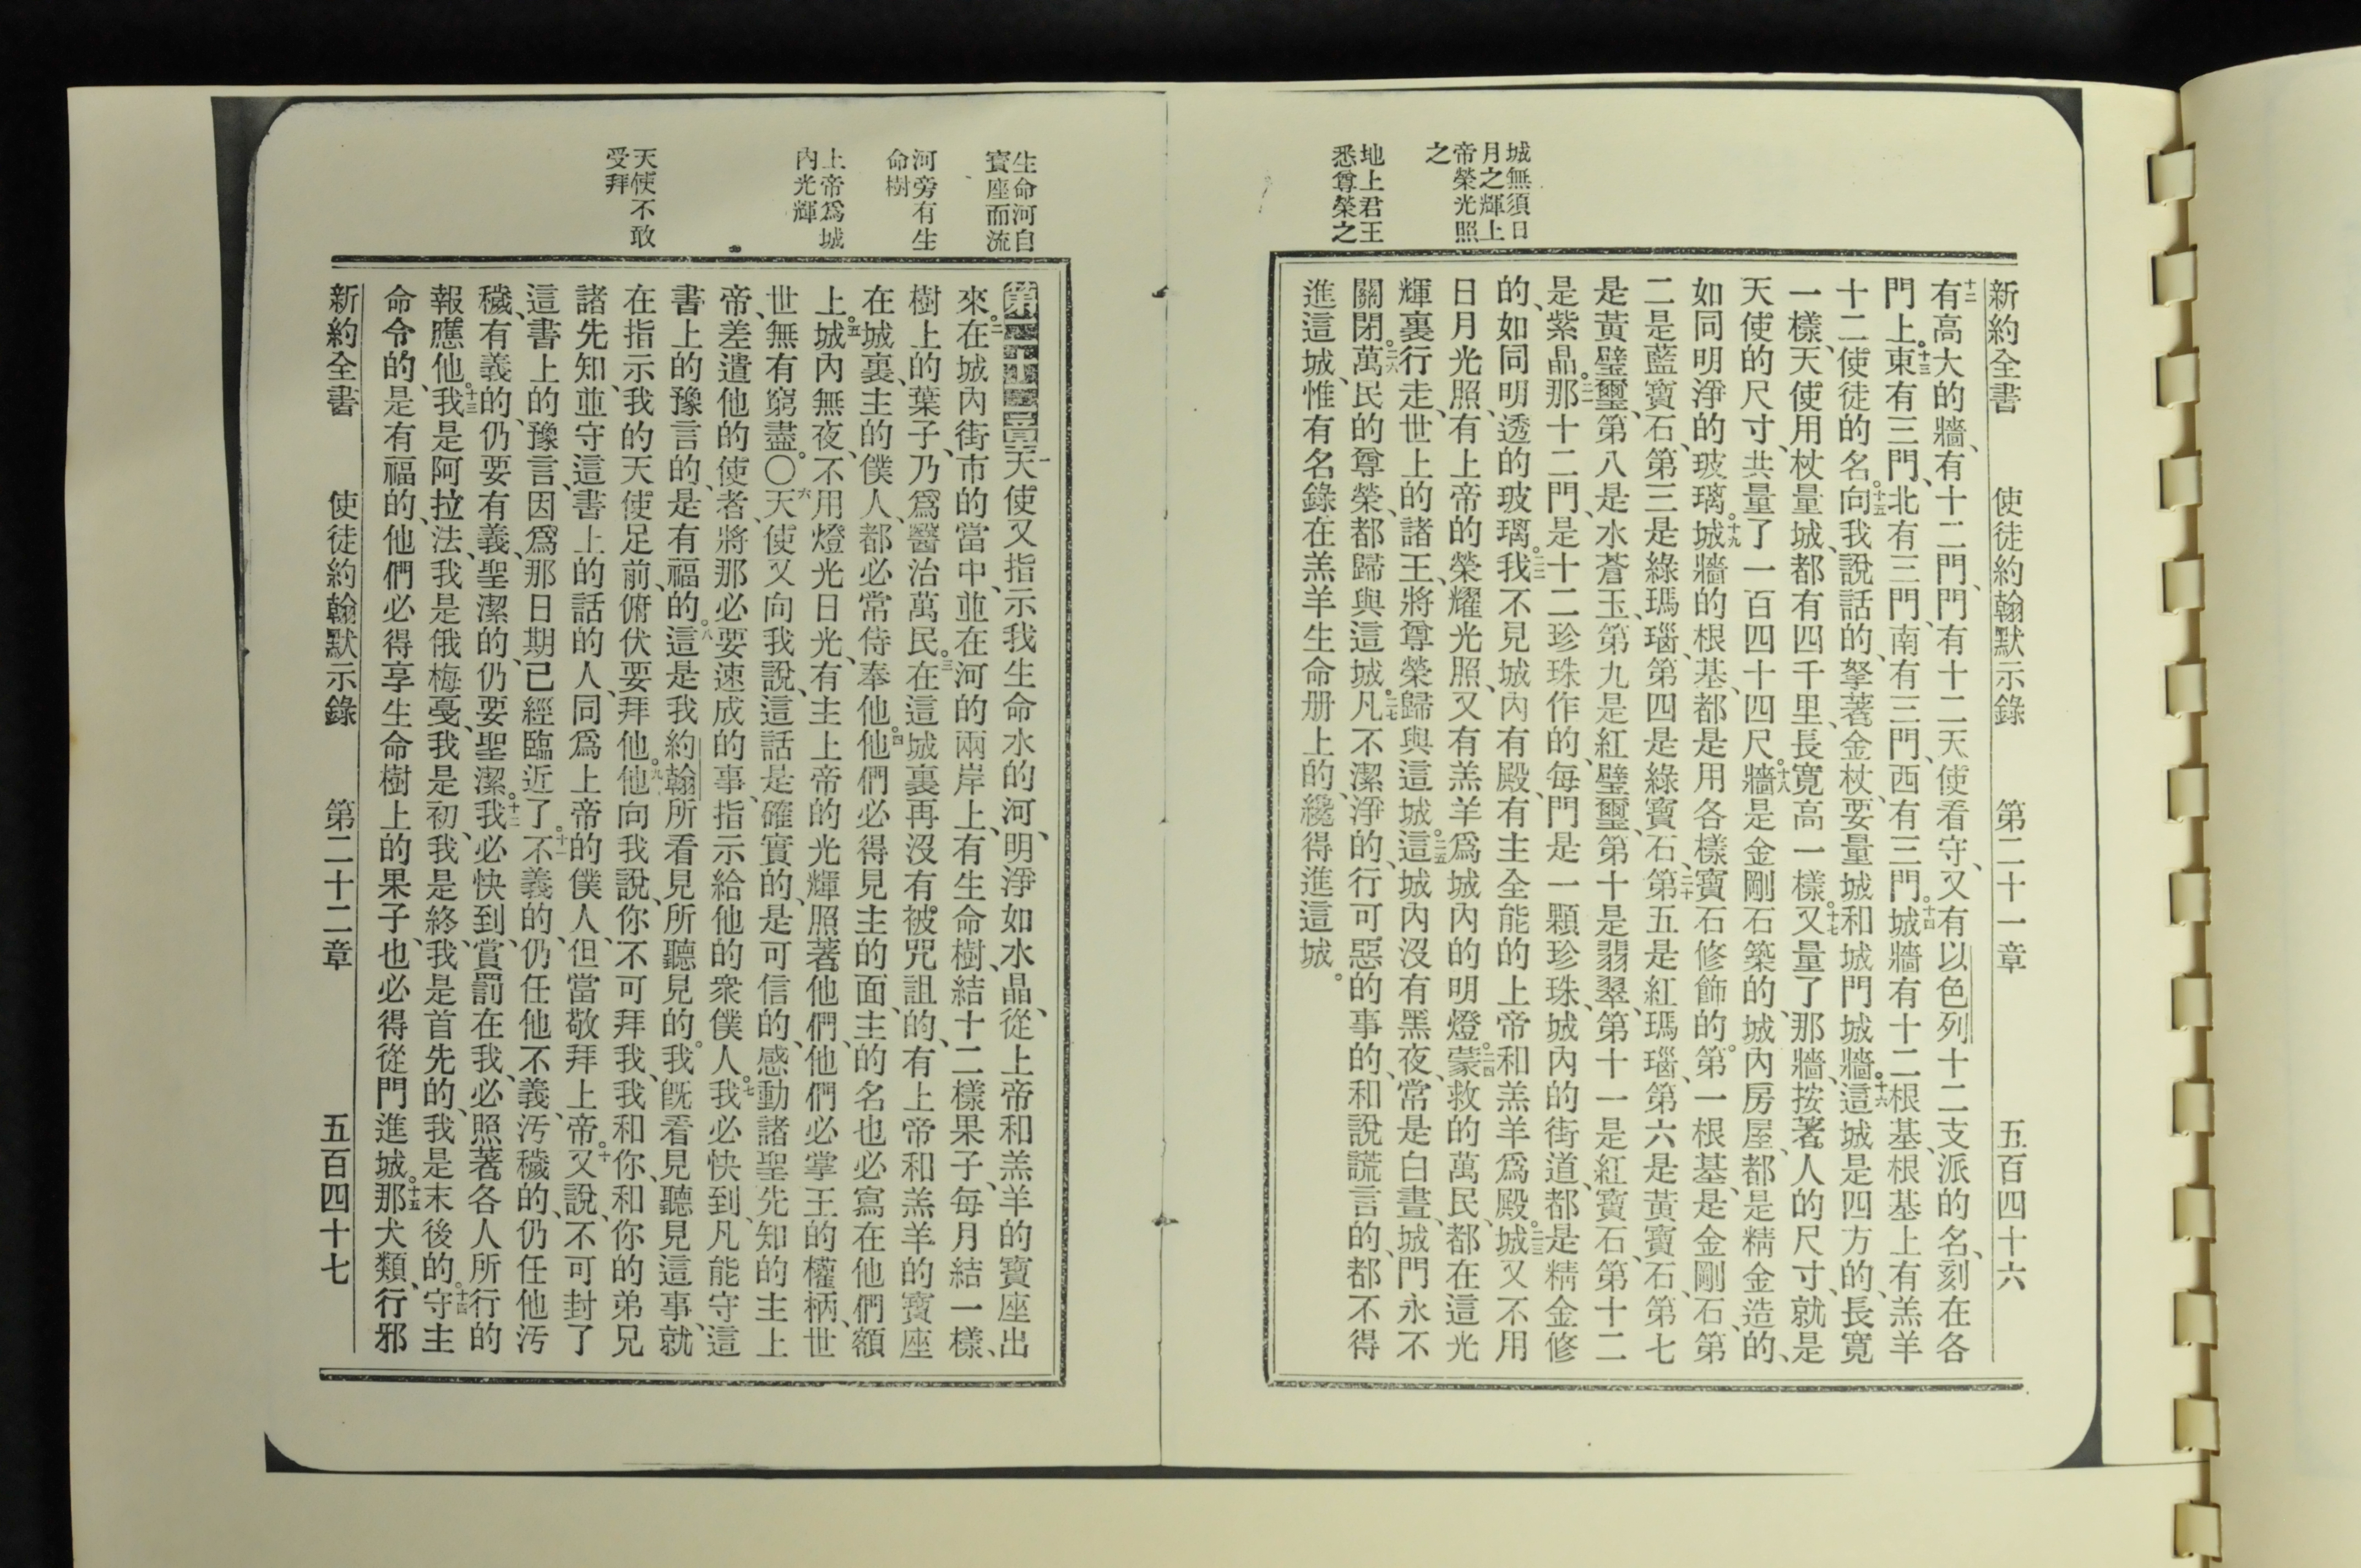 新約全書 使徒約翰默示錄 第二十一章 五百四十六
城無須日
月之輝上
帝榮光照
之
地上君王
悉尊榮之
十二有高大的牆、有十二門、門有十二天使看守、又有以色列十二支派的名、刻在各
門上。十三東有三門、北有三門、南有三門、西有三門。十四城牆有十二根基、根基上有羔羊
十二使徒的名。十五向我說話的、拏著金杖、要量城和城門城牆。十六這城是四方的、長寬
一樣、天使用杖量城、都有四千里、長寬高一樣。十七又量了那牆、按著人的尺寸、就是
天使的尺寸、共量了一百四十四尺。十八牆是金剛石築的、城內房屋、都是精金造的、
如同明淨的玻璃。十九城牆的根基、都是用各樣寶石修飾的。第一根基、是金剛石、第
二是藍寶石、第三是綠瑪瑙、第四是綠寶石、二十第五是紅瑪瑙、第六是黃寶石、第七
是黃璧璽、第八是水蒼玉、第九是紅璧璽、第十是翡翠、第十一是紅寶石、第十二
是紫晶。二一那十二門、是十二珍珠作的、每門是一顆珍珠、城內的街道、都是精金修
的、如同明透的玻璃。二二我不見城內有殿、有主全能的上帝和羔羊爲殿。二三城又不用
日月光照、有上帝的榮耀光照、又有羔羊爲城內的明燈。二四蒙救的萬民、都在這光
輝裏行走、世上的諸王、將尊榮歸與這城。二五這城內沒有黑夜、常是白晝、城門永不
關閉。二六萬民的尊榮、都歸與這城。二七凡不潔淨的、行可惡的事的、和說謊言的、都不得
進這城、惟有名錄在羔羊生命册上的、纔得進這城。
生命河自
寶座而流
河旁有生
命樹
上帝爲城
內光輝
天使不敢
受拜
第二十二章一天使又指示我生命水的河、明淨如水晶、從上帝和羔羊的寶座出
來。二在城內街市的當中、並在河的兩岸上、有生命樹、結十二樣果子、每月結一樣、
樹上的葉子、乃爲醫治萬民。三在這城裏再沒有被咒詛的、有上帝和羔羊的寶座
在城裏、主的僕人、都必常侍奉他。四他們必得見主的面、主的名也必寫在他們額
上。五城內無夜、不用燈光日光、有主上帝的光輝照著他們、他們必掌王的權柄、世
世無有窮盡。〇六天使又向我說、這話是確實的、是可信的、感動諸聖先知的主上
帝、差遣他的使者、將那必要速成的事、指示給他的衆僕人。七我必快到、凡能守這
書上的豫言的、是有福的。八這是我約翰所看見所聽見的。我旣看見聽見這事、就
在指示我的天使足前、俯伏要拜他。九他向我說、你不可拜我、我和你、和你的弟兄
諸先知、並守這書上的話的人、同爲上帝的僕人、但當敬拜上帝。十又說、不可封了
這書上的豫言、因爲那日期已經臨近了。十一不義的、仍任他不義、汚穢的、仍任他汚
穢、有義的、仍要有義、聖潔的、仍要聖潔。十二我必快到、賞罰在我、必照著各人所行的
報應他。十三我是阿拉法、我是俄梅戛、我是初、我是終、我是首先的、我是末後的。十四守主
命令的、是有福的、他們必得享生命樹上的果子、也必得從門進城。十五那犬類、行邪
新約全書 使徒約翰默示錄 第二十二章 五百四十七